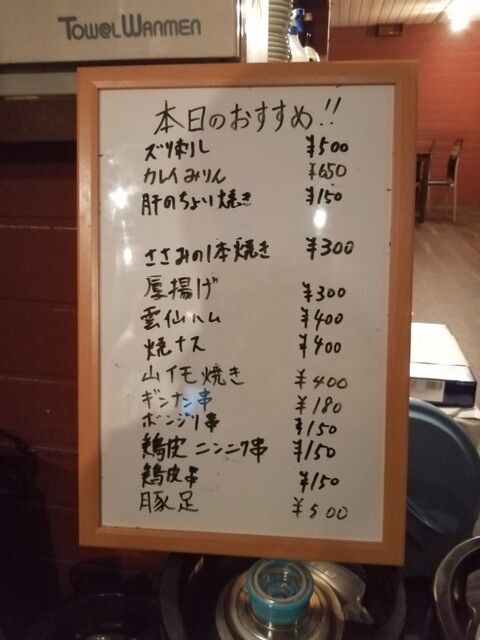 TOWEL WARMER
本日のおすすめ!!
ズリ刺し ¥500
カレイみりん ¥650
肝のちょい焼き ¥150
ささみの1本焼き ¥300
厚揚げ ¥300
雲仙ハム ¥400
焼ナス ¥400
山イモ焼き ¥400
ギンナン串 ¥180
ボンジリ串 ¥150
鶏皮ニンニク串 ¥150
鶏皮串 ¥150
豚足 ¥500